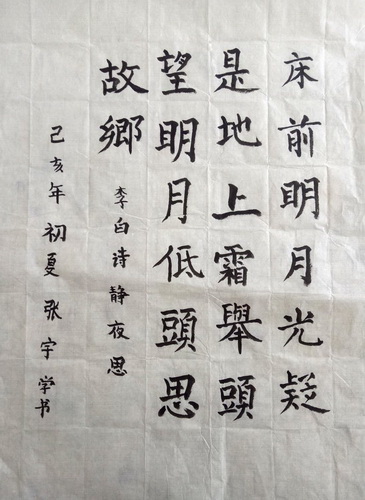 床前明月光疑
是地上霜舉頭
望明月低頭思
故鄉
李白诗静夜思
己亥年初夏张宇学书